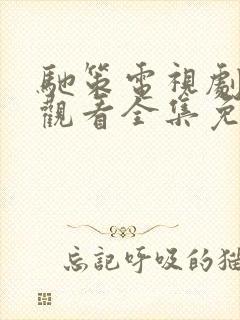 馳策電視劇
觀看全集免
忘記呼吸的貓